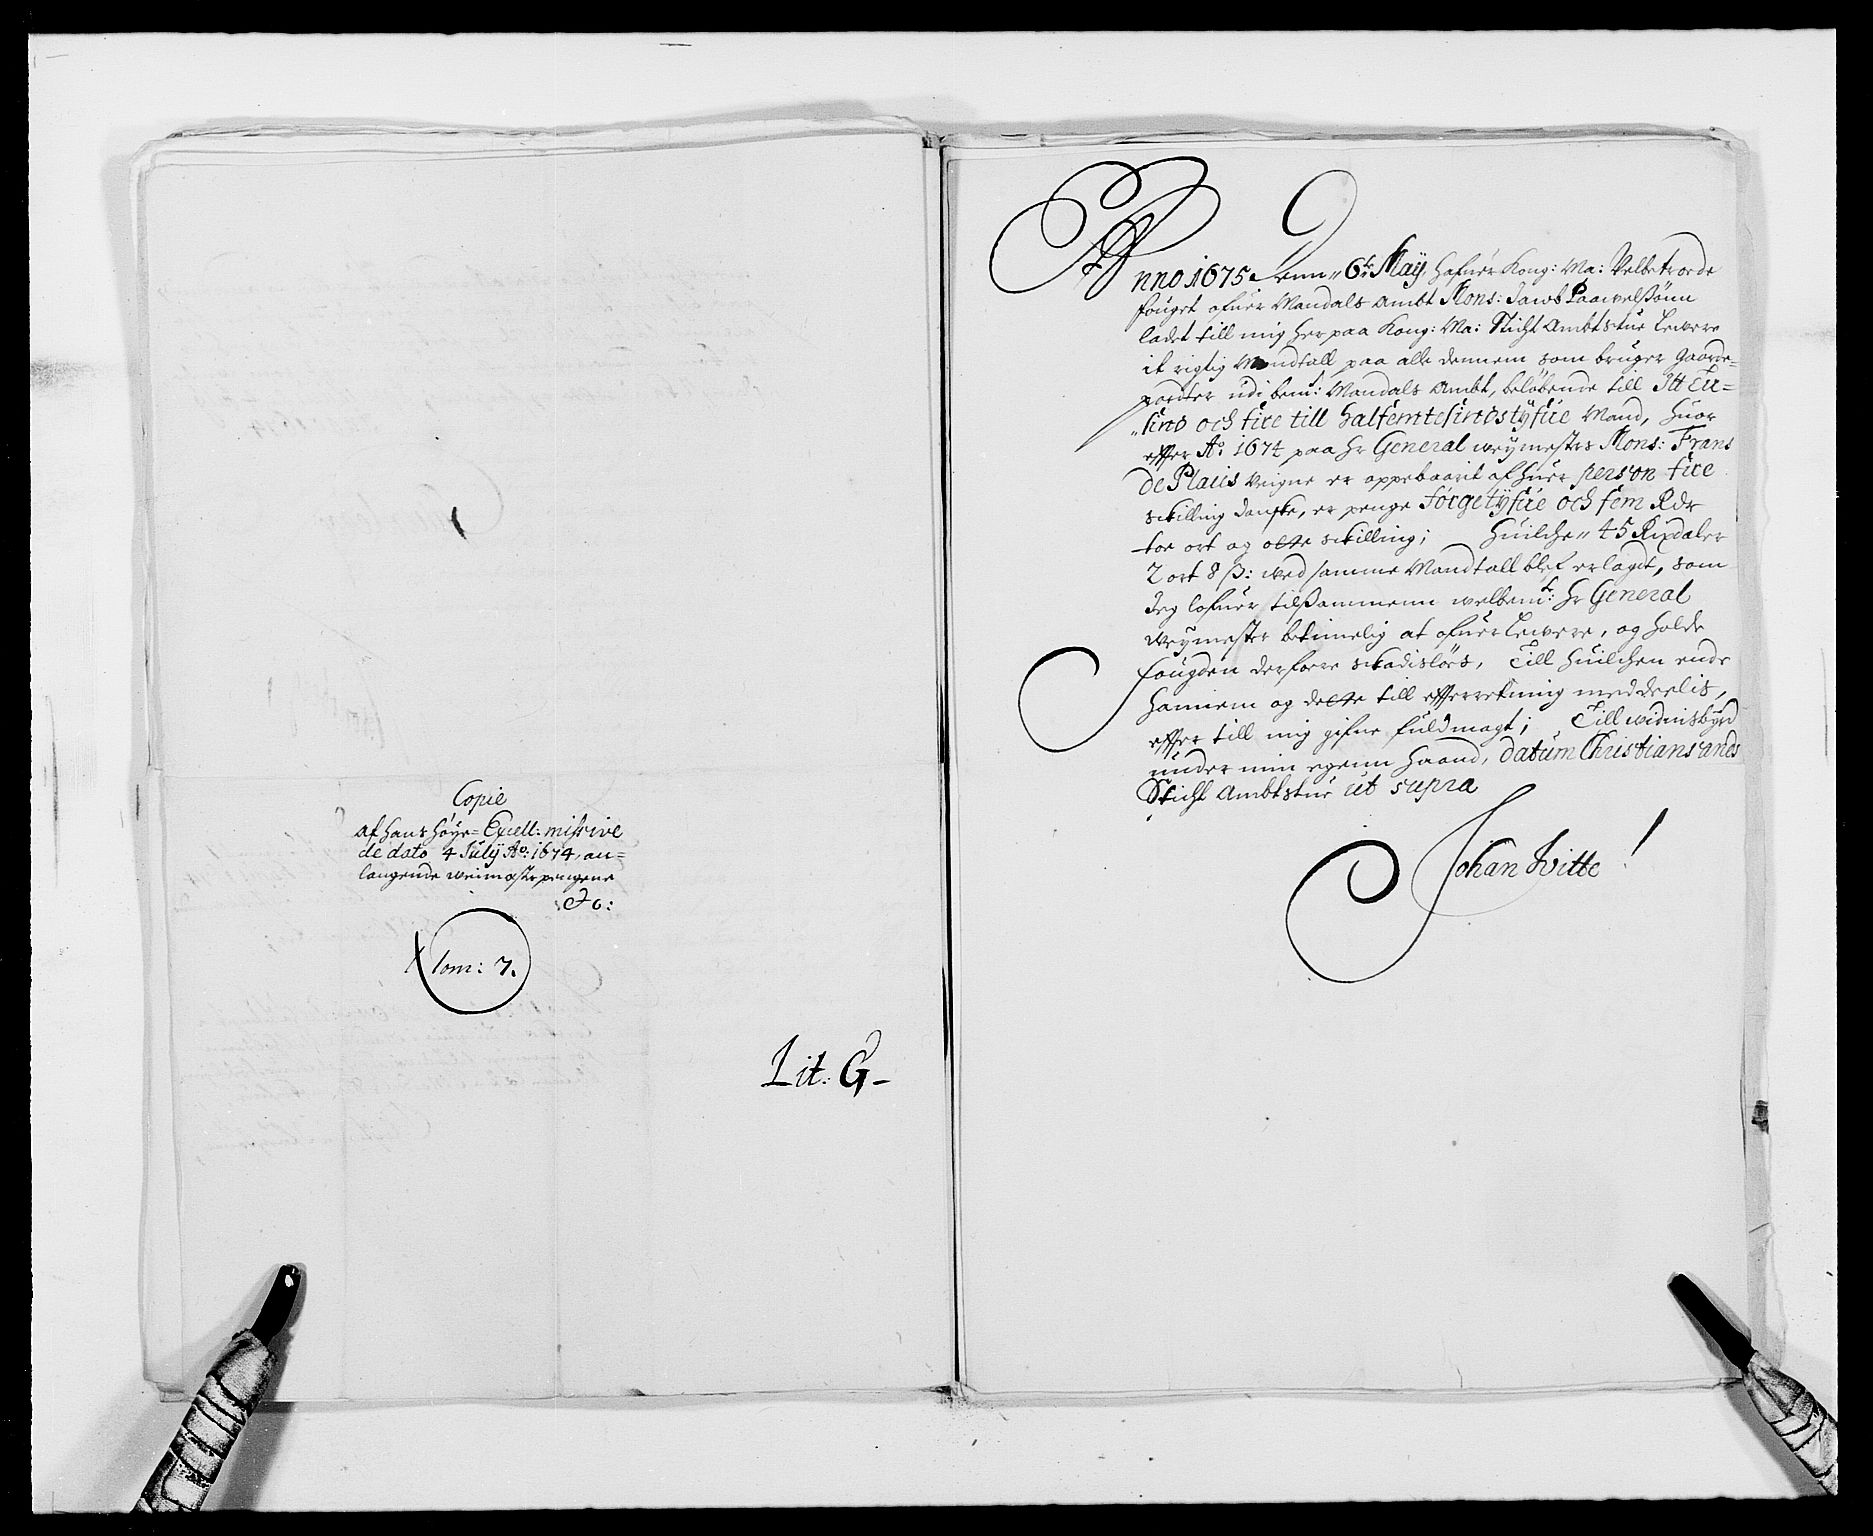 Copie
af hans höye Excell: missive
de dato 4 Julij Ao: 1674, an=
langende weimesterpengene
No:
Nom: 7.
Lit: G-
Anno 1675 denn 6te Maij, hafuer Kong: Ma: Velbetroede
fouget ofuer Mandals Ambt Mons: Jacob Paawelssönn
ladet till mig her paa Kong: Ma: Sticht Ambtstue lewere
it rigtig Mandtall paa alle dennem som bruger gaarde=
parter udi bemt: Mandals Ambt, belöbende till Itt Tu=
sind och fire till halfemtesindstyfue Mand, huor
effter Ao: 1674 paa Hr General weymesters Mons: Frans
de Placis Veigne er oppebaarit af huer person fire
skilling danske, er penge förgetyfue och fem Rdr
toe ort og otte skilling; Huilche 45 Rixdaler
2 ort 8 ß: ved samme Mandtall blef erlagt, som
Jeg lofuer tilsammenn welbemt: Hr General
weymester betimelig at ofuerlewere, og holde
fougden derforre skadislös, Till huilchen ende
hannem og dette till effterretning meddeelis,
effter till mig gifne fuldmagt; Till widnisbyrd
under min egenn haand, datum Christiansands
Sticht Ambtstue ut supra
Johan Witte